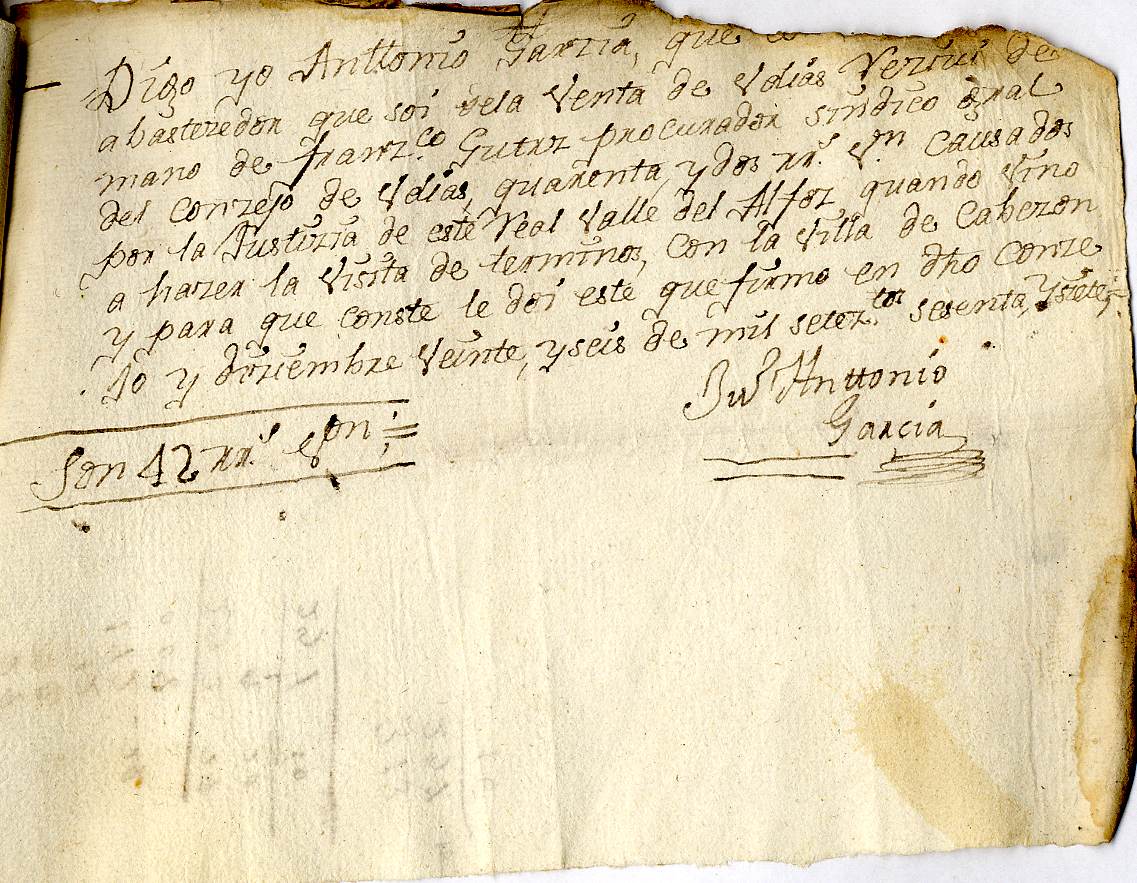 Digo yo Anttonio Garzia, que
abastezedor que soi de la Venta de Vdias Rezivi de
mano de franzco Gutrrz procurador sindico gral
del Conzejo de Vdias, quarenta, y dos rrs Von Causados
por la Justizia de este Real Valle del Alfoz quando Vino
a hazer la Visita de terminos, con la Villa de Cabezon
y para que conste le doi este que firmo en dho Conze
jo y diziembre Veinte, y seis de mil seteztos sesenta, y siete
Anttonio
Garcia
Son 42 rrs Von